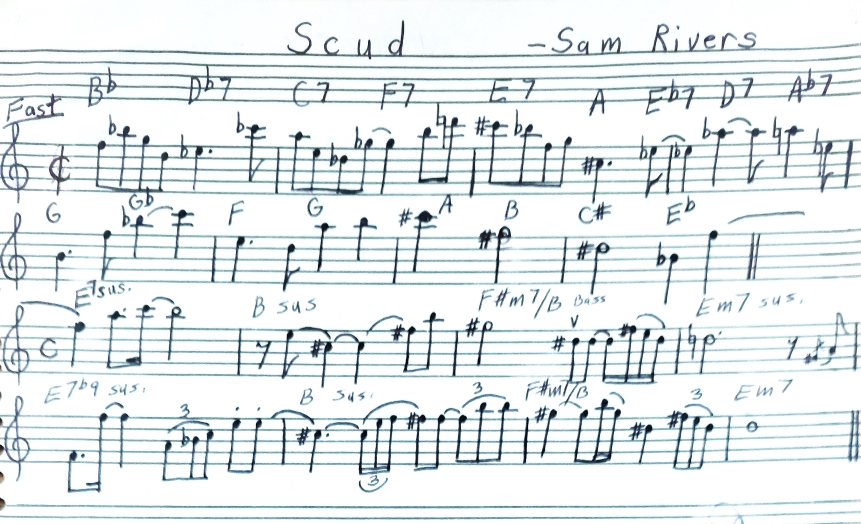 Scud -Sam Rivers
Fast Bb Db7 C7 F7 E7 A Eb7 D7 Ab7
G Gb F G A B C# Eb
E7sus. B sus F#m7/B Bass Em7 sus.
C
E7b9 sus. B sus. F#m7/B Em7
3 3 3 3